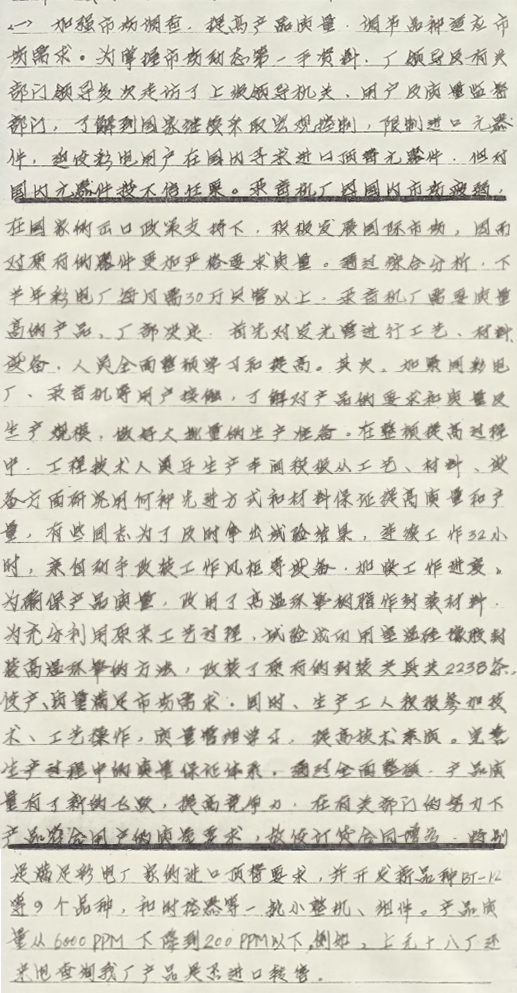 (一) 加强市场调查,提高产品质量,调节品种适应市
场需求。为掌握市场动态第一手资料,厂领导及有关
部门领导多次走访了上级领导机关、用户及质量监督
部门,了解到国家继续采取宏观控制,限制进口元器
件,迫使彩电用户在国内寻求进口顶替元器件,但对
国内元器件技术信任度。录音机厂因国内市场疲软,
在国家的出口政策支持下,积极发展国际市场,因而
对原有的器件更加严格要求质量。通过综合分析,下
半年彩电厂每月需30万只管以上,录音机厂需要质量
高的产品。厂部决定,首先对发光管进行工艺、材料、
设备、人员全面整顿学习和提高。其次,加紧同彩电
厂、录音机等用户接触,了解对产品的要求和质量及
生产规模,做好大批量的生产准备。在整顿提高过程
中,工程技术人员与生产车间积极从工艺、材料、设
备方面研究用何种先进方式和材料保证提高质量和产
量,有些同志为了及时拿出试验结果,连续工作32小
时,亲自动手改装工作风柜等设备,加快工作进度。
为确保产品质量,改用了高温环氧树脂作封装材料,
为充分利用原来工艺过程,试验成功用室温硅橡胶封
装高温环氧的方法,改装了原有的封装夹具共2238条,
使产、质量满足市场需求。同时、生产工人积极参加技
术、工艺操作,质量管理学习,提高技术素质。完善
生产过程中的质量保证体系。通过全面整顿,产品质
量有了新的飞跃,提高竞争力,在有关部门的努力下
产品符合用户的质量要求,故使订货合同增多,特别
是满足彩电厂家的进口顶替要求,并开发新品种BT-12
等9个品种,和时控器等一批小整机、组件。产品质
量从6000PPM下降到200PPM以下,例如,上无十八厂还
来电查询我厂产品是否进口报管。